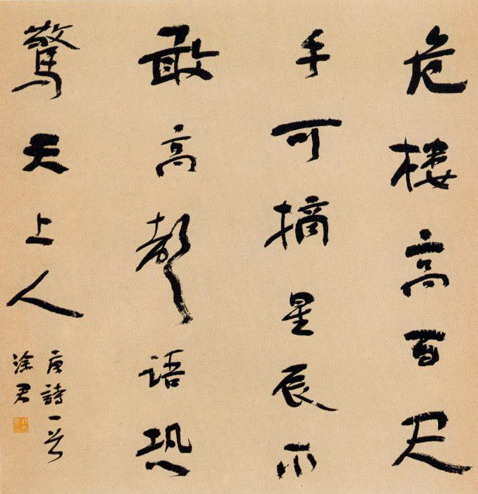 危楼高百尺
手可摘星辰不
敢高声语恐
驚天上人
唐詩一首
涂君